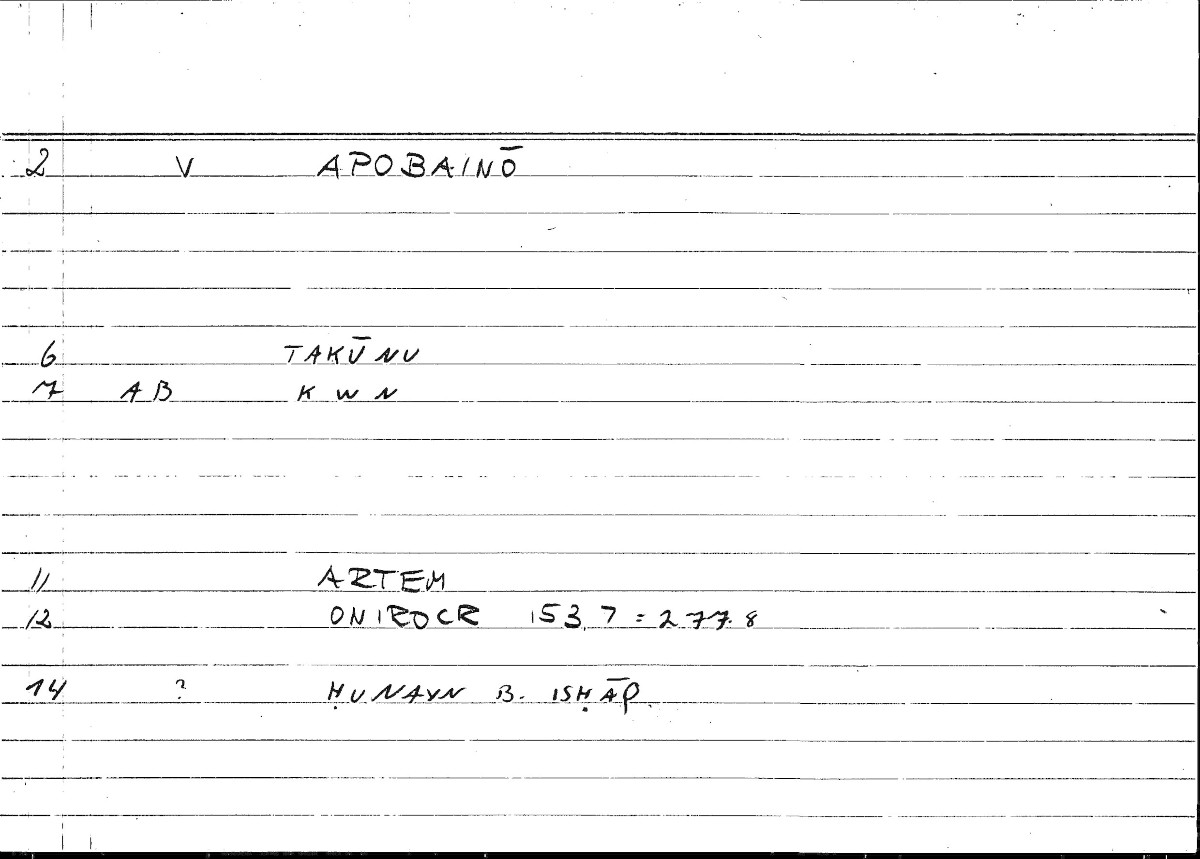 2 V APOBAINŌ
6 TAKŪNU
7 AB KWN
11 ARTEM
12 ONIROCR 153,7 = 277.8
14 ? ḤUNAYN B. ISḤĀQ